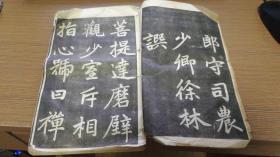 郎守司農
少卿徐林
譔
菩提達磨壁
觀少室斥相
指心號曰禪